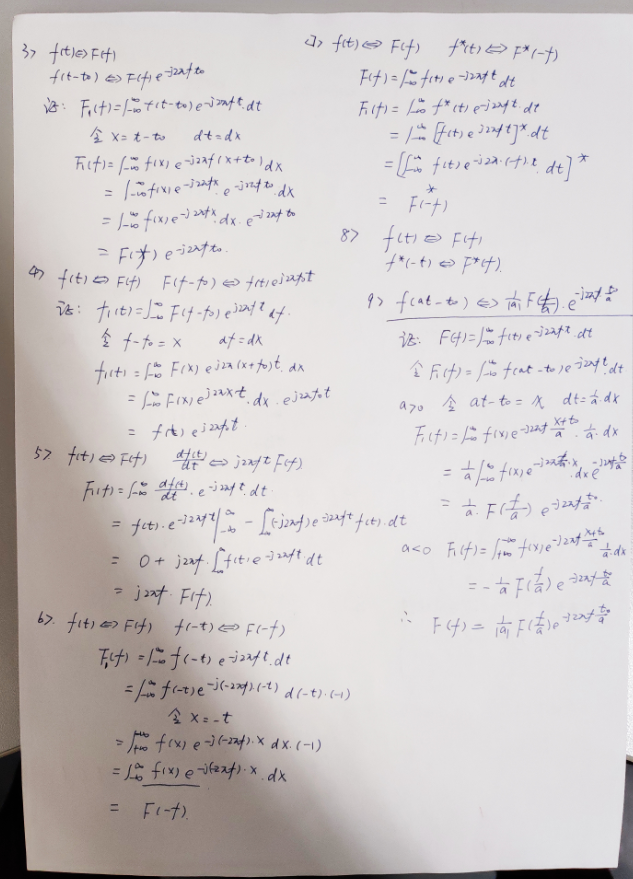 3> f(t)⇔F(f)
f(t-t₀) ⇔ F(f) e^{-j2πft₀}
证: F₁(f)=∫_{-∞}^{∞} f(t-t₀) e^{-j2πft}.dt
令 x=t-t₀ dt=dx
F₁(f)=∫_{-∞}^{∞} f(x) e^{-j2πf(x+t₀)} dx
= ∫_{-∞}^{∞} f(x) e^{-j2πfx}. e^{-j2πft₀}.dx
= ∫_{-∞}^{∞} f(x) e^{-j2πfx}.dx. e^{-j2πft₀}
= F(f) e^{-j2πft₀}.
4> f(t) ⇔ F(f) F(f-f₀) ⇔ f(t) e^{j2πf₀t}
证: f₁(t)=∫_{-∞}^{∞} F(f-f₀) e^{j2πft} df
令 f-f₀=x df=dx
f₁(t)=∫_{-∞}^{∞} F(x) e^{j2π(x+f₀)t}. dx
= ∫_{-∞}^{∞} F(x) e^{j2πx.t}.dx. e^{j2πf₀t}
= f(t) e^{j2πf₀t}.
5> f(t) ⇔ F(f) df(t)/dt ⇔ j2πft F(f)
F₁(f)=∫_{-∞}^{∞} df(t)/dt . e^{-j2πft}.dt.
= f(t). e^{-j2πft}|_{-∞}^{∞} - ∫_{-∞}^{∞}(-j2πf) e^{-j2πft} f(t).dt
= 0 + j2πf. ∫_{-∞}^{∞} f(t) e^{-j2πft}.dt
= j2πf. F(f).
6>. f(t)⇔F(f) f(-t) ⇔ F(-f)
F₁(f) = ∫_{-∞}^{∞} f(-t) e^{-j2πft}.dt
= ∫_{-∞}^{∞} f(-t) e^{-j(-2πf).(-t)} d(-t).(-1)
令 x=-t
= ∫_{+∞}^{-∞} f(x) e^{-j(-2πf).x} dx.(-1)
= ∫_{-∞}^{∞} f(x) e^{-j(-2πf).x}.dx
= F(-f).
7> f(t) ⇔ F(f) f*(t) ⇔ F*(-f)
F(f)=∫_{-∞}^{∞} f(t) e^{-j2πft}dt
F₁(f)= ∫_{-∞}^{∞} f*(t) e^{-j2πft}.dt
= ∫_{-∞}^{∞} [f(t) e^{j2πft}]*.dt
= [∫_{-∞}^{∞} f(t) e^{-j2π.(-f).t}. dt]*
= F*(-f)
8> f(t) ⇔ F(f)
f*(-t) ⇔ F*(f).
9> f(at-t₀) ⇔ 1/|a| F(f/a). e^{-j2πf t₀/a}
证: F(f)=∫_{-∞}^{∞} f(t) e^{-j2πft}.dt
令 F₁(f)=∫_{-∞}^{∞} f(at-t₀) e^{-j2πft}.dt
a>0 令 at-t₀ = x dt=1/a.dx
F₁(f)=∫_{-∞}^{∞} f(x) e^{-j2πf (x+t₀)/a}. 1/a. dx
= 1/a ∫_{-∞}^{∞} f(x) e^{-j2π f/a.x}.dx e^{-j2πf t₀/a}
= 1/a. F(f/a) e^{-j2πf t₀/a}.
a<0 F₁(f)=∫_{+∞}^{-∞} f(x) e^{-j2πf (x+t₀)/a} 1/a.dx
= -1/a F(f/a) e^{-j2πf t₀/a}
∴ F(f) = 1/|a| F(f/a) e^{-j2πf t₀/a}